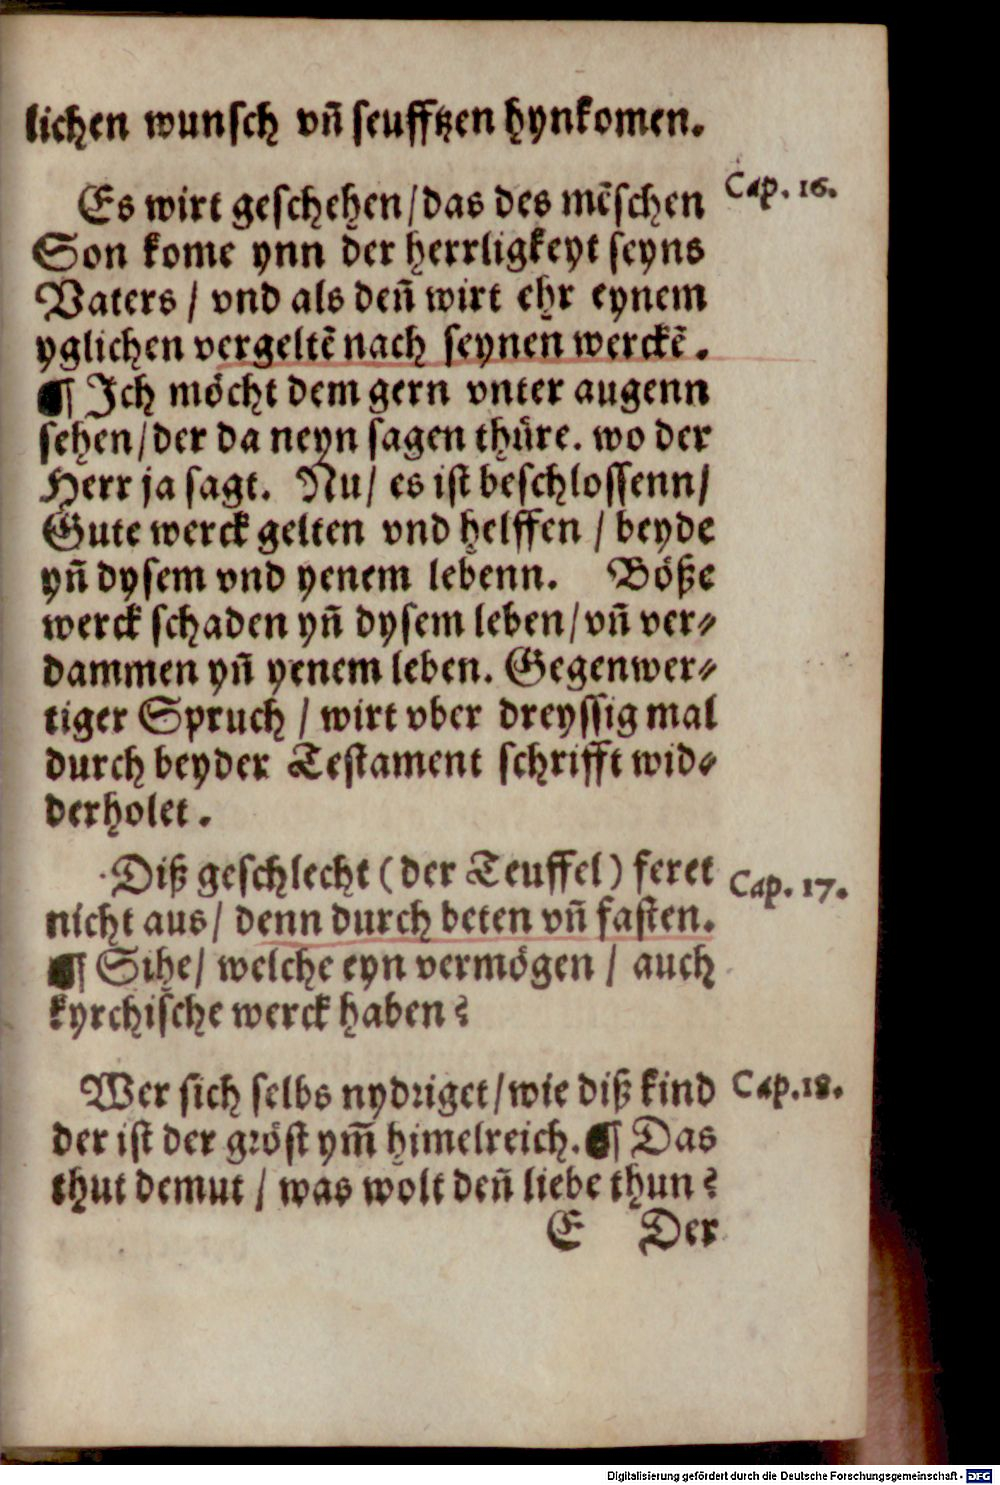 lichen wunsch vñ seufftzen hynkomen.
Es wirt geschehen/das des mẽschen
Cap. 16.
Son kome ynn der herrligkeyt seyns
Vaters / vnd als deñ wirt ehr eynem
yglichen vergeltẽ nach seynen werckẽ.
¶ Ich möcht dem gern vnter augenn
sehen/der da neyn sagen thüre. wo der
Herr ja sagt. Nu/ es ist beschlossenn/
Gute werck gelten vnd helffen / beyde
yñ dysem vnd yenem lebenn. Böße
werck schaden yñ dysem leben/vñ ver⸗
dammen yñ yenem leben. Gegenwer⸗
tiger Spruch / wirt vber dreyssig mal
durch beyder Testament schrifft wid⸗
derholet.
Diß geschlecht (der Teuffel) feret
Cap. 17.
nicht aus/ denn durch beten vñ fasten.
¶ Sihe/ welche eyn vermögen / auch
kyrchische werck haben?
Wer sich selbs nydriget/wie diß kind
Cap. 18.
der ist der gröst ym̃ himelreich. ¶ Das
thut demut / was wolt deñ liebe thun?
E Der
Digitalisierung gefördert durch die Deutsche Forschungsgemeinschaft - DFG